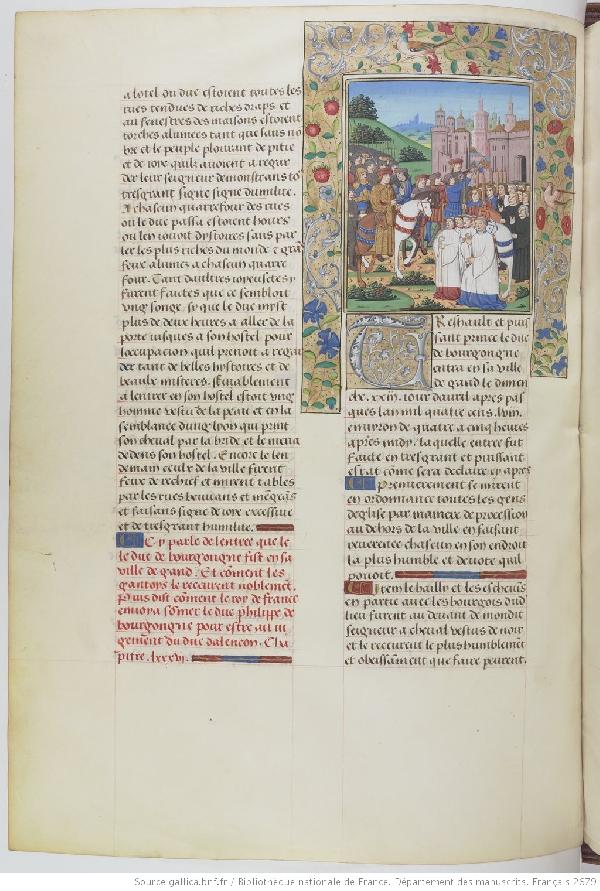 a lotel ou duc estoient toutes les
rues tendues de riches draps et
au fenestres des maisons estoient
torches alumees tant que sans no
bre et le peuple plourant de pitie
et de ioye quilz auoient a regar
der leur seigneur demonstrans to
tresgrant signe signe dumilite.
A chascun quarrefour des rues
ou le duc passa estoient hours
ou len iouoit dystoires sans par
ler les plus riches du monde et gras
feux alumes a chascun quarre
four. Tant daultres ioyeusetes y
furent faictes que ce sembloit
vng songe. sy que le duc myst
plus de deux heures a aller de la
porte iusques a son hostel pour
loccupacion quil prenoit a regar
der tant de belles hystoires et de
beaulx misteres. Semblablement
a lentree en son hostel estoit vng
homme vestu de la peau et en la
semblance dung lyon qui print
son cheual par la bride et le mena
dedens son hostel. Encore le len
demain ceulx de la ville firent
feux de rechief et mirent tables
par les rues beuuans et mengeas
et faisans signe de ioye excessiue
et de tresgrant humilite.
Cy parle de lentree que le
le duc de bourgongne fist en sa
ville de gand. Et coment les
gantoys le receurent noblemet.
Puis dist coment le roy de france
enuoya somer le duc phelippe de
bourgongne pour estre au iu
gement du duc dalencon. Cha
pitre. lxxxvi.
Treshault et puis
sant prince le duc
de bourgongne
entra en sa ville
de gand le dimen
che. xxiii. iour dauril apres pas
ques lan mil quatre cens. lviii.
enuyron de quatre a cinq heures
apres midy. laquelle entree fut
faicte en tresgrant et puissant
estat come sera declaire cy apres
Premierement se mirent
en ordonnance toutes les gens
deglise par maniere de procession
au dehors de la ville en faisant
reuerence chascun en son endroit
la plus humble et deuote quil
pouoit.
Item le bailly et les escheuis
en partie auec les bourgois dud
lieu furent au deuant de mondit
seigneur a cheual vestus de noir
et le receurent le plus humblemet
et obeissamet que faire peurent.
Source gallica.bnf.fr / Bibliothèque nationale de France. Département des manuscrits. Français 2679